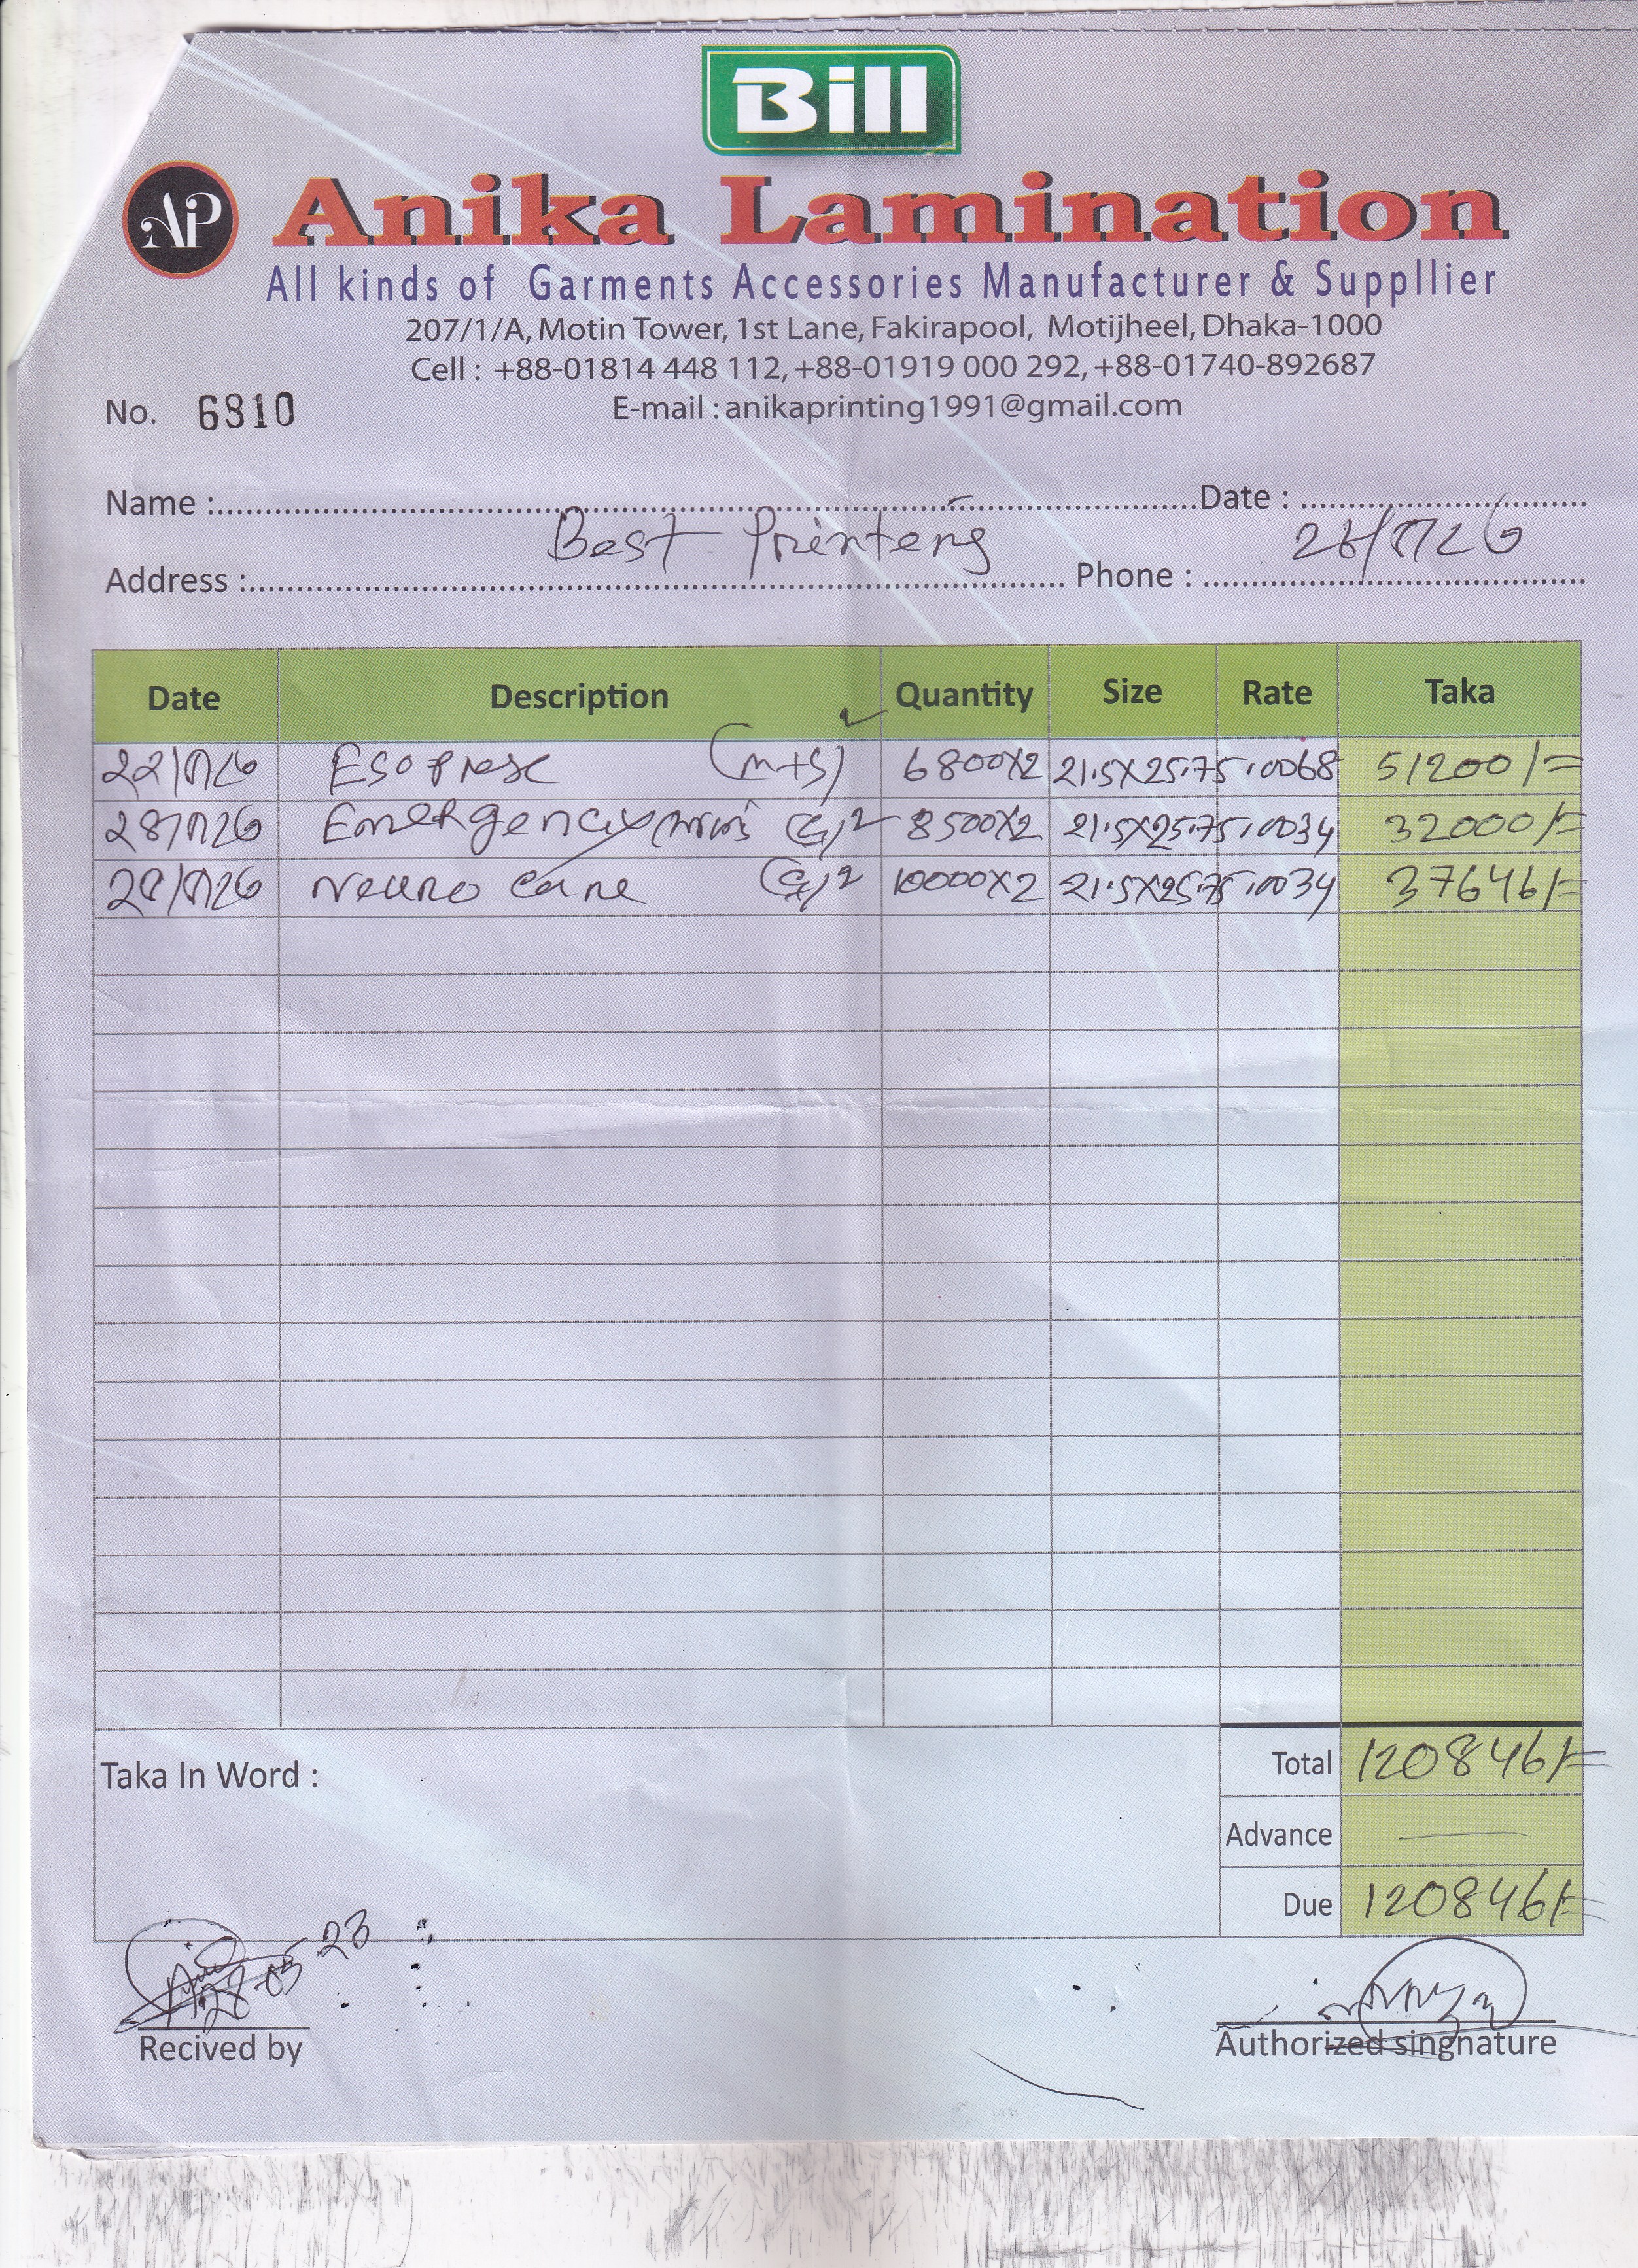 Bill
AP
Anika Lamination
All kinds of Garments Accessories Manufacturer & Suppllier
207/1/A, Motin Tower, 1st Lane, Fakirapool, Motijheel, Dhaka-1000
Cell : +88-01814 448 112, +88-01919 000 292, +88-01740-892687
No. 6310 E-mail : anikaprinting1991@gmail.com
Name : Date :
Best Printers
Address : Phone :
Date Description Quantity Size Rate Taka
Esoprex (m+s)² 6800x2 21.5x25.75 .0068 51200/=
Emergency (G)² 8500x2 21.5x25.75 .0034 32000/=
Neuro Care (G)² 10000x2 21.5x25.75 .0034 37646/=
Taka In Word : Total 120846/=
Advance —
Due 120846/=
Recived by Authorized singnature